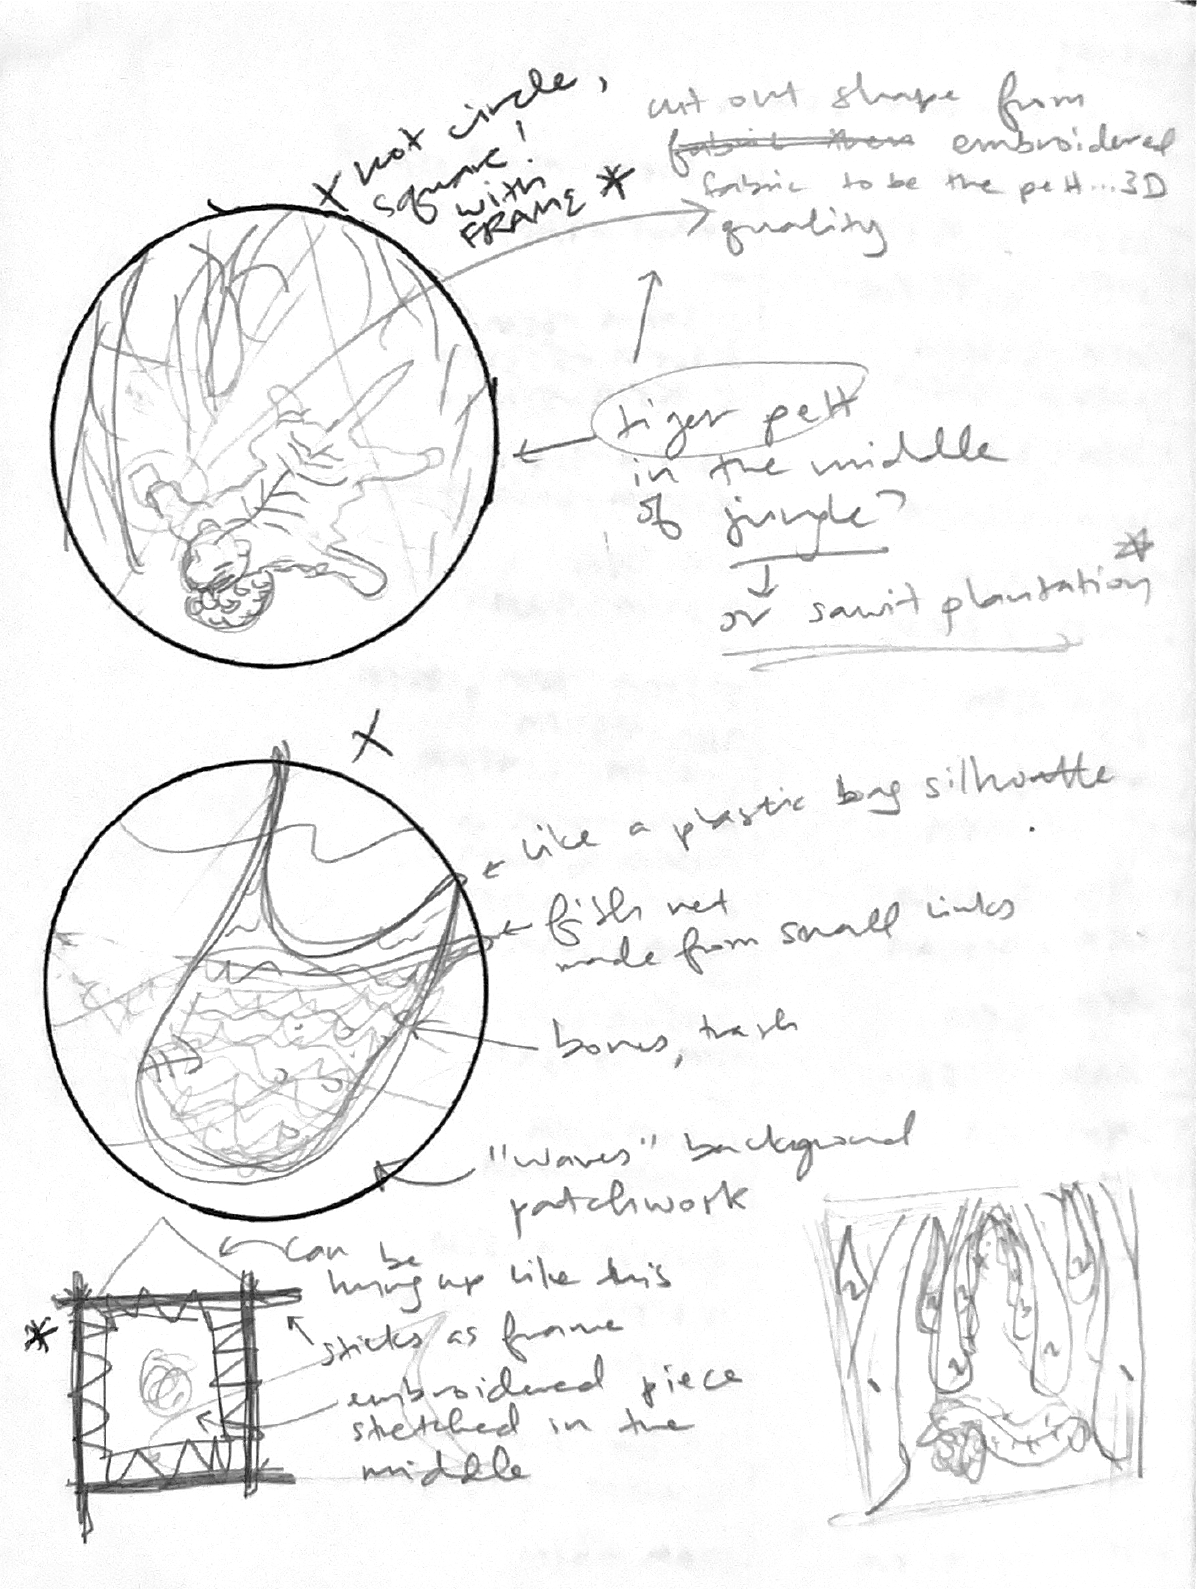 X not circle,
square!
with
FRAME *
cut out shape from
fabric then embroidered
fabric to be the pelt...3D
quality
tiger pelt
in the middle
of jungle?
or sawit plantation *
X
like a plastic bag silhouette
fish net
made from small links
bones, trash
"waves" background
patchwork
can be
hung up like this
*
sticks as frame
embroidered piece
stretched in the
middle